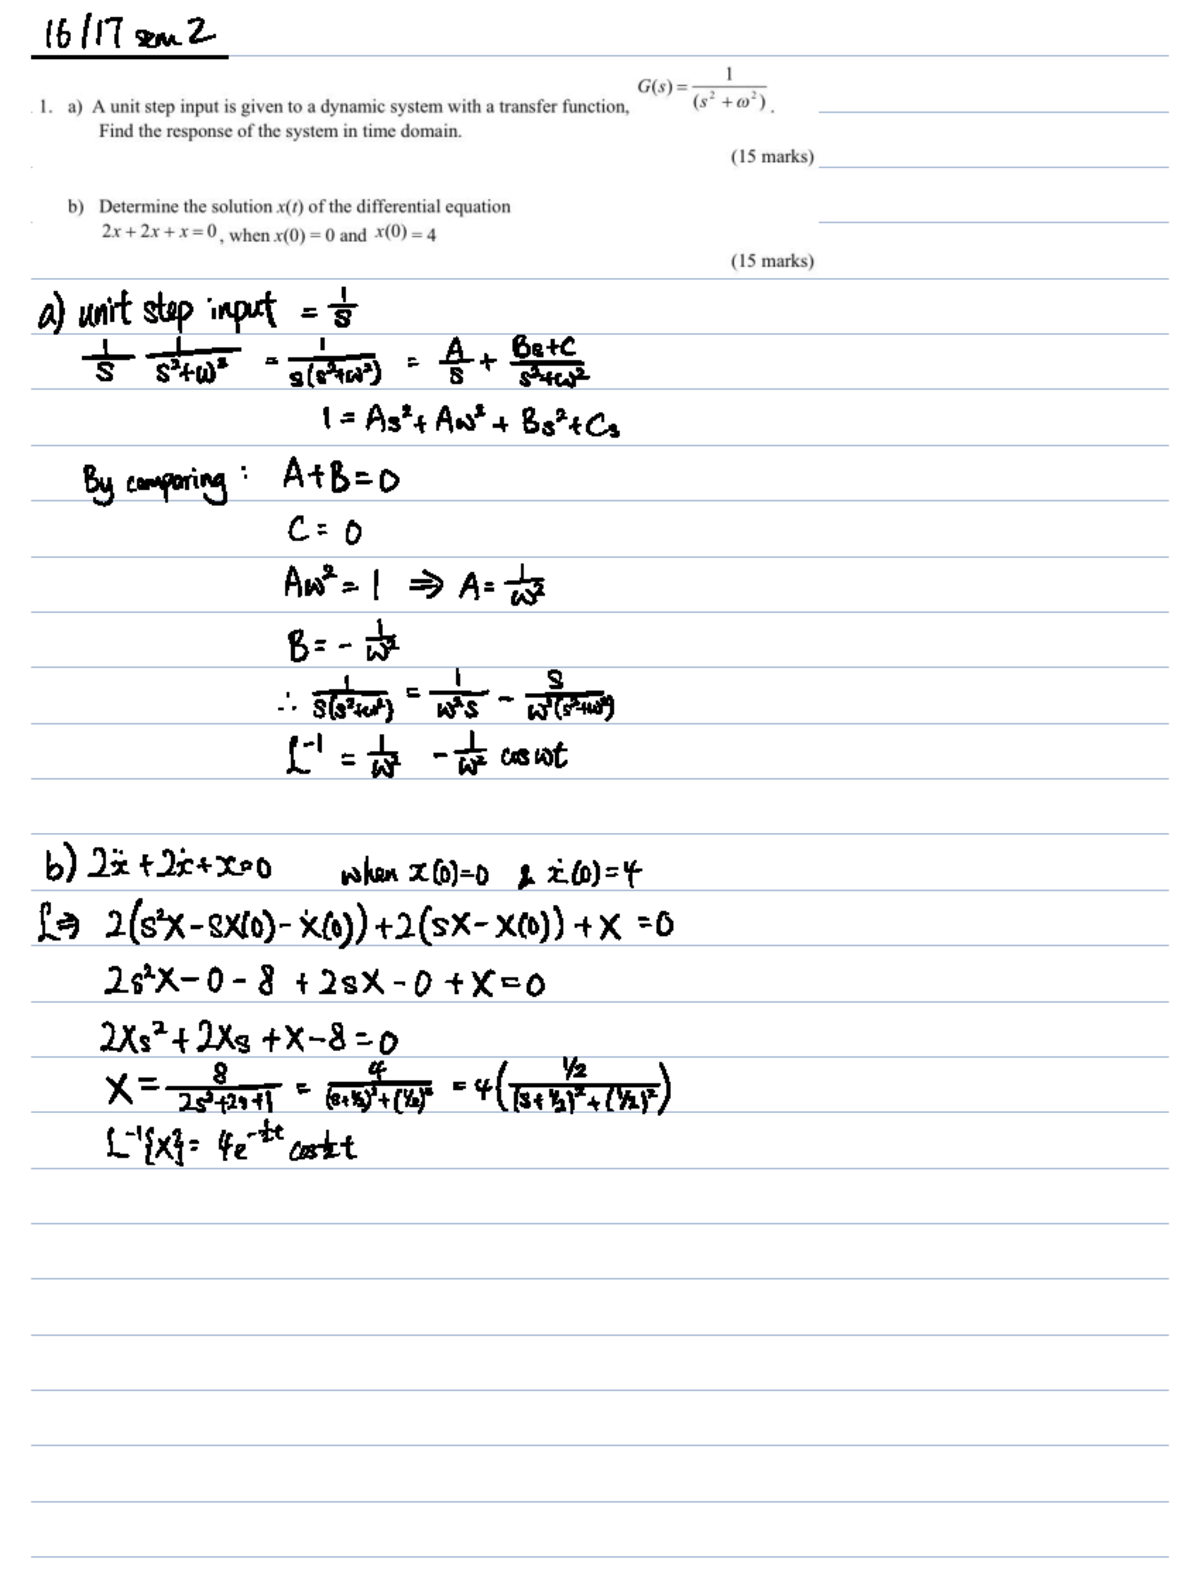 16/17 sem 2
1. a) A unit step input is given to a dynamic system with a transfer function, G(s) = 1/(s² + ω²).
Find the response of the system in time domain.
(15 marks)
b) Determine the solution x(t) of the differential equation
2x + 2x + x = 0, when x(0) = 0 and x(0) = 4
(15 marks)
a) unit step input = 1/s
1/s 1/(s²+ω²) = 1/(s(s²+ω²)) = A/s + (Bs+C)/(s²+ω²)
1 = As² + Aω² + Bs² + Cs
By comparing : A+B=0
C = 0
Aω² = 1 ⇒ A = 1/ω²
B = - 1/ω²
∴ 1/(s(s²+ω²)) = 1/(ω²s) - s/(ω²(s²+ω²))
L⁻¹ = 1/ω² - 1/ω² cos ωt
b) 2ẍ + 2ẋ + x = 0 when x(0)=0 & ẋ(0)=4
L⇒ 2(s²X - sX(0) - Ẋ(0)) + 2(sX - X(0)) + X = 0
2s²X - 0 - 8 + 2sX - 0 + X = 0
2Xs² + 2Xs + X - 8 = 0
X = 8/(2s²+2s+1) = 4/((s+½)²+(½)²) = 4(½/((s+½)²+(½)²))
L⁻¹{X} = 4e^(-½t) cos½t